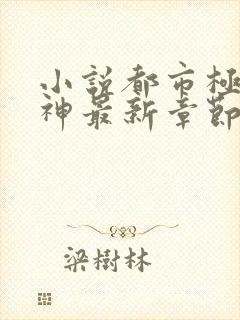 小說都市極
神最新章節
梁樹林